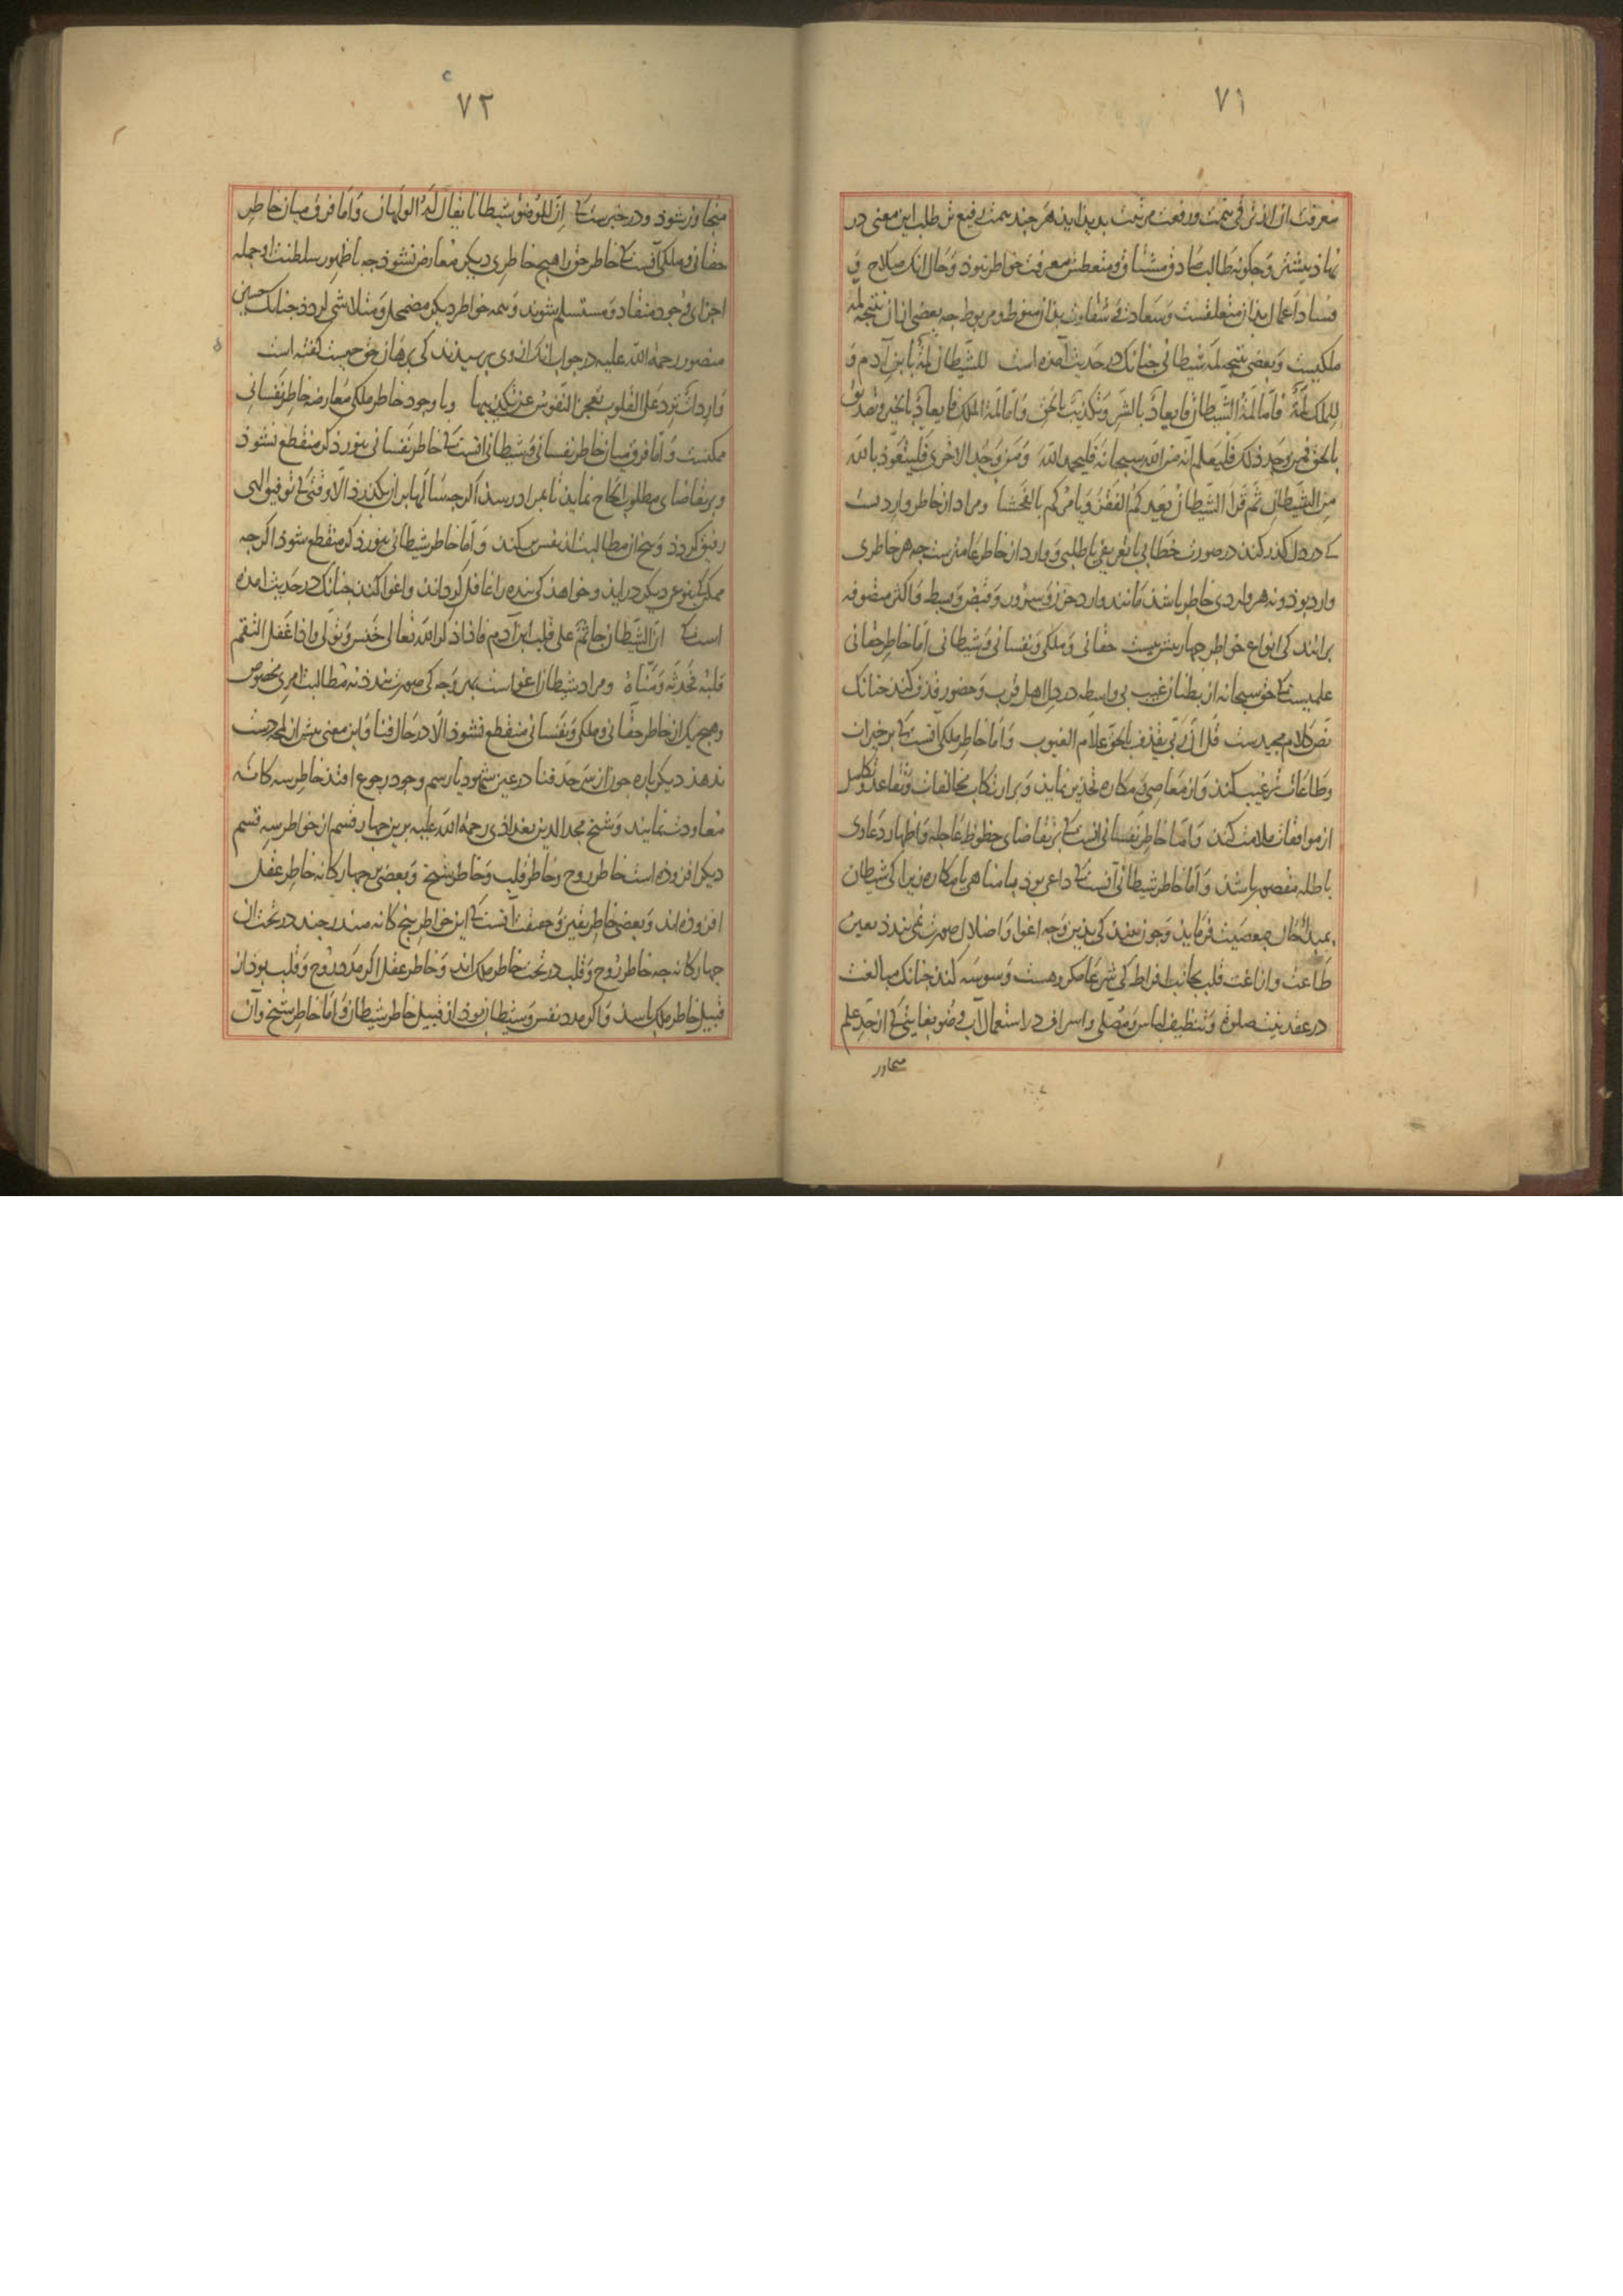 ۷۱
معرفت ان اثر ترقی همت ورفعت مرتبت بدید اید هر چند همت رفیع تر طلب این معنی در
نهاد بیشتر وچکونه طالب صادق مشتاق ومتعطش معرفت خواطر نبود وحال انک صلاح و
فساد اعمال بدان متعلقست وسعادت و شقاوت بدان منوط ومربوط جه بعضی ازان نتیجه لمه
ملکیست وبعضی نتیجه لمه شیطانی جنانک در حدیث آمده است للشیطان لمة بابن آدم و
للملک لمة فاما لمة الشیطان فایعاد بالشر وتکذیب بالحق واما لمة الملک فایعاد بالخیر وتصدیق
بالحق فمن وجد ذلک فلیعلم انه من الله سبحانه فلیحمد الله ومن وجد الاخری فلیتعوذ بالله
من الشیطان ثم قرا الشیطان یعدکم الفقر ویامرکم بالفحشا ومراد از خاطر واردیست
که در دل گذر کند در صورت خطابی یا تعریفی یا طلبی و وارد از خاطر عامترست جه هر خاطری
وارد بود ونه هر واردی خاطر باشد مانند وارد حزن وسرور وقبض وبسط واکثر متصوفه
برانند کی انواع خواطر جهار بیش نیست حقانی وملکی ونفسانی وشیطانی اما خاطر حقانی
علمیست که حق سبحانه از بطنان غیب بی واسطه در دل اهل قرب وحضور قذف کند جنانک
نص کلام مجیدست قل ان ربی یقذف بالحق علام الغیوب واما خاطر ملکی انست که بر خیرات
وطاعات ترغیب کند واز معاصی و مکاره تحذیر نماید وبر ارتکاب مخالفات وتقاعد وتکاسل
از موافقات ملامت کند واما خاطر نفسانی انست که بر تقاضای حظوظ عاجله واظهار دعاوی
باطله مقصور باشد واما خاطر شیطانی آنست که داعی بود با مناهی یا مکاره زیرا کی شیطان
بمبدا الحال بمعصیت فرماید وجون بیند کی بدین وجه اغوا واضلال صورت نمی بندد بعین
طاعت وازاغت قلب بجانب افراط کی شرعا مکروهست وسوسه کند جنانک مبالغت
در عقد نیت صلوة وتنظیف لباس ومصلی واسراف در استعمال آب وضو بغایتی که از حد علم
متجاوز
۷۲
متجاوز شود ودر خبرست که ان للوضوء شیطانا یقال له الولهان واما فرق میان خاطر
حقانی وملکی آنست که خاطر حق را هیچ خاطری دیکر معارض نشود جه با ظهور سلطنت او جمله
اجزای وجود منقاد ومستسلم شوند وهمه خواطر دیکر مضمحل ومتلاشی گردد جنانک حسین
منصور رحمة الله علیه در جواب انک از وی پرسیدند کی برهان حق چیست گفته است
واردات ترد علی القلوب تعجز النفوس عن تکذیبها وبا وجود خاطر ملکی معارضه خاطر نفسانی
ممکنست واما فرق میان خاطر نفسانی وشیطانی انست که خاطر نفسانی بنور ذکر منقطع نشود
وبر تقاضای مطلوب الحاح نماید تا بمراد رسد اگرجه سالها بران بکذرد الا وقتی که توفیق الهی
رفیق کردد وبیخ ان مطالبت از نفس بر کند واما خاطر شیطانی بنور ذکر منقطع شود اگرجه
ممکن که بنوعی دیکر دراید وخواهد کی بنده را غافل کرداند واغوا کند جنانک در حدیث امده
است که ان الشیطان جاثم علی قلب ابن آدم فاذا ذکر الله تعالی خنس وتولی واذا غفل التقم
قلبه فحدثه ومناه ومراد شیطان اغواست بهر وجه کی صورت بندد نه مطالبت امری مخصوص
وهیج یک از خاطر حقانی وملکی ونفسانی منقطع نشود الا در حال فنا واین معنی بیش از لمحه دست
ندهد دیکر باره جون از سرحد فنا در عین شهود با رسم وجود رجوع افتد خاطر سه کانه
معاودت نمایند وشیخ مجد الدین بغدادی رحمة الله علیه برین جهار قسم از خواطر سه قسم
دیکر افزوده است خاطر روح وخاطر قلب وخاطر شیخ وبعضی برین جهار کانه خاطر عقل
افزوده اند وبعضی خاطر یقین وحقیقت آنست که این خواطر پنج کانه مندرجند در تحت ان
جهار کانه جه خاطر روح وقلب در تحت خاطر ملک اند وخاطر عقل اکر مدد روح وقلب بود از
قبیل خاطر ملک باشد واکر مدد نفس وشیطان بود از قبیل خاطر شیطان واما خاطر شیخ وآن